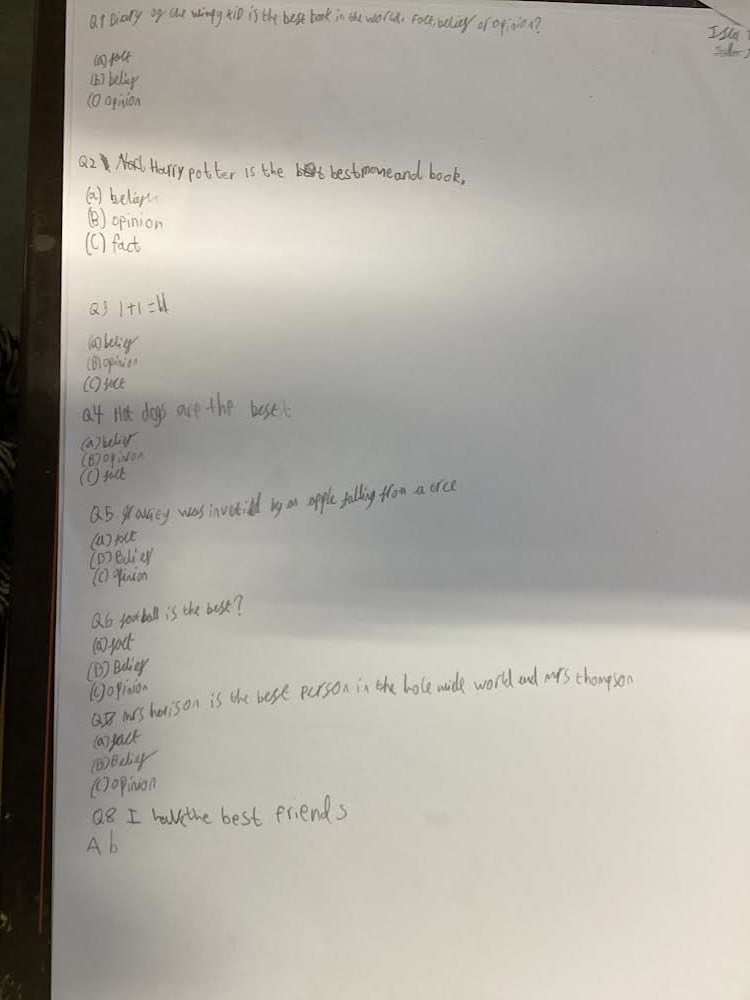 Q1 Diary of the wimpy kiD is the best book in the world. Fact, belief or opinion?
Isla
(a) fact
(b) belief
(C) opinion
Q2 Harry potter is the best move and book.
(a) belief
(B) opinion
(C) fact
Q3 1+1=4
(a) belief
(B) opinion
(C) fact
Q4 Hot dogs are the best
(a) belief
(B) opinion
(C) fact
Q5 was by an apple falling from a
(a) fact
(B) Belief
(C) opinion
Q6 football is the best?
(a) fact
(B) Belief
(C) opinion
Q7 mrs harison is the best person in the hole wide world and mrs thompson
(a) fact
(B) Belief
(C) opinion
Q8 I have the best friends
A b